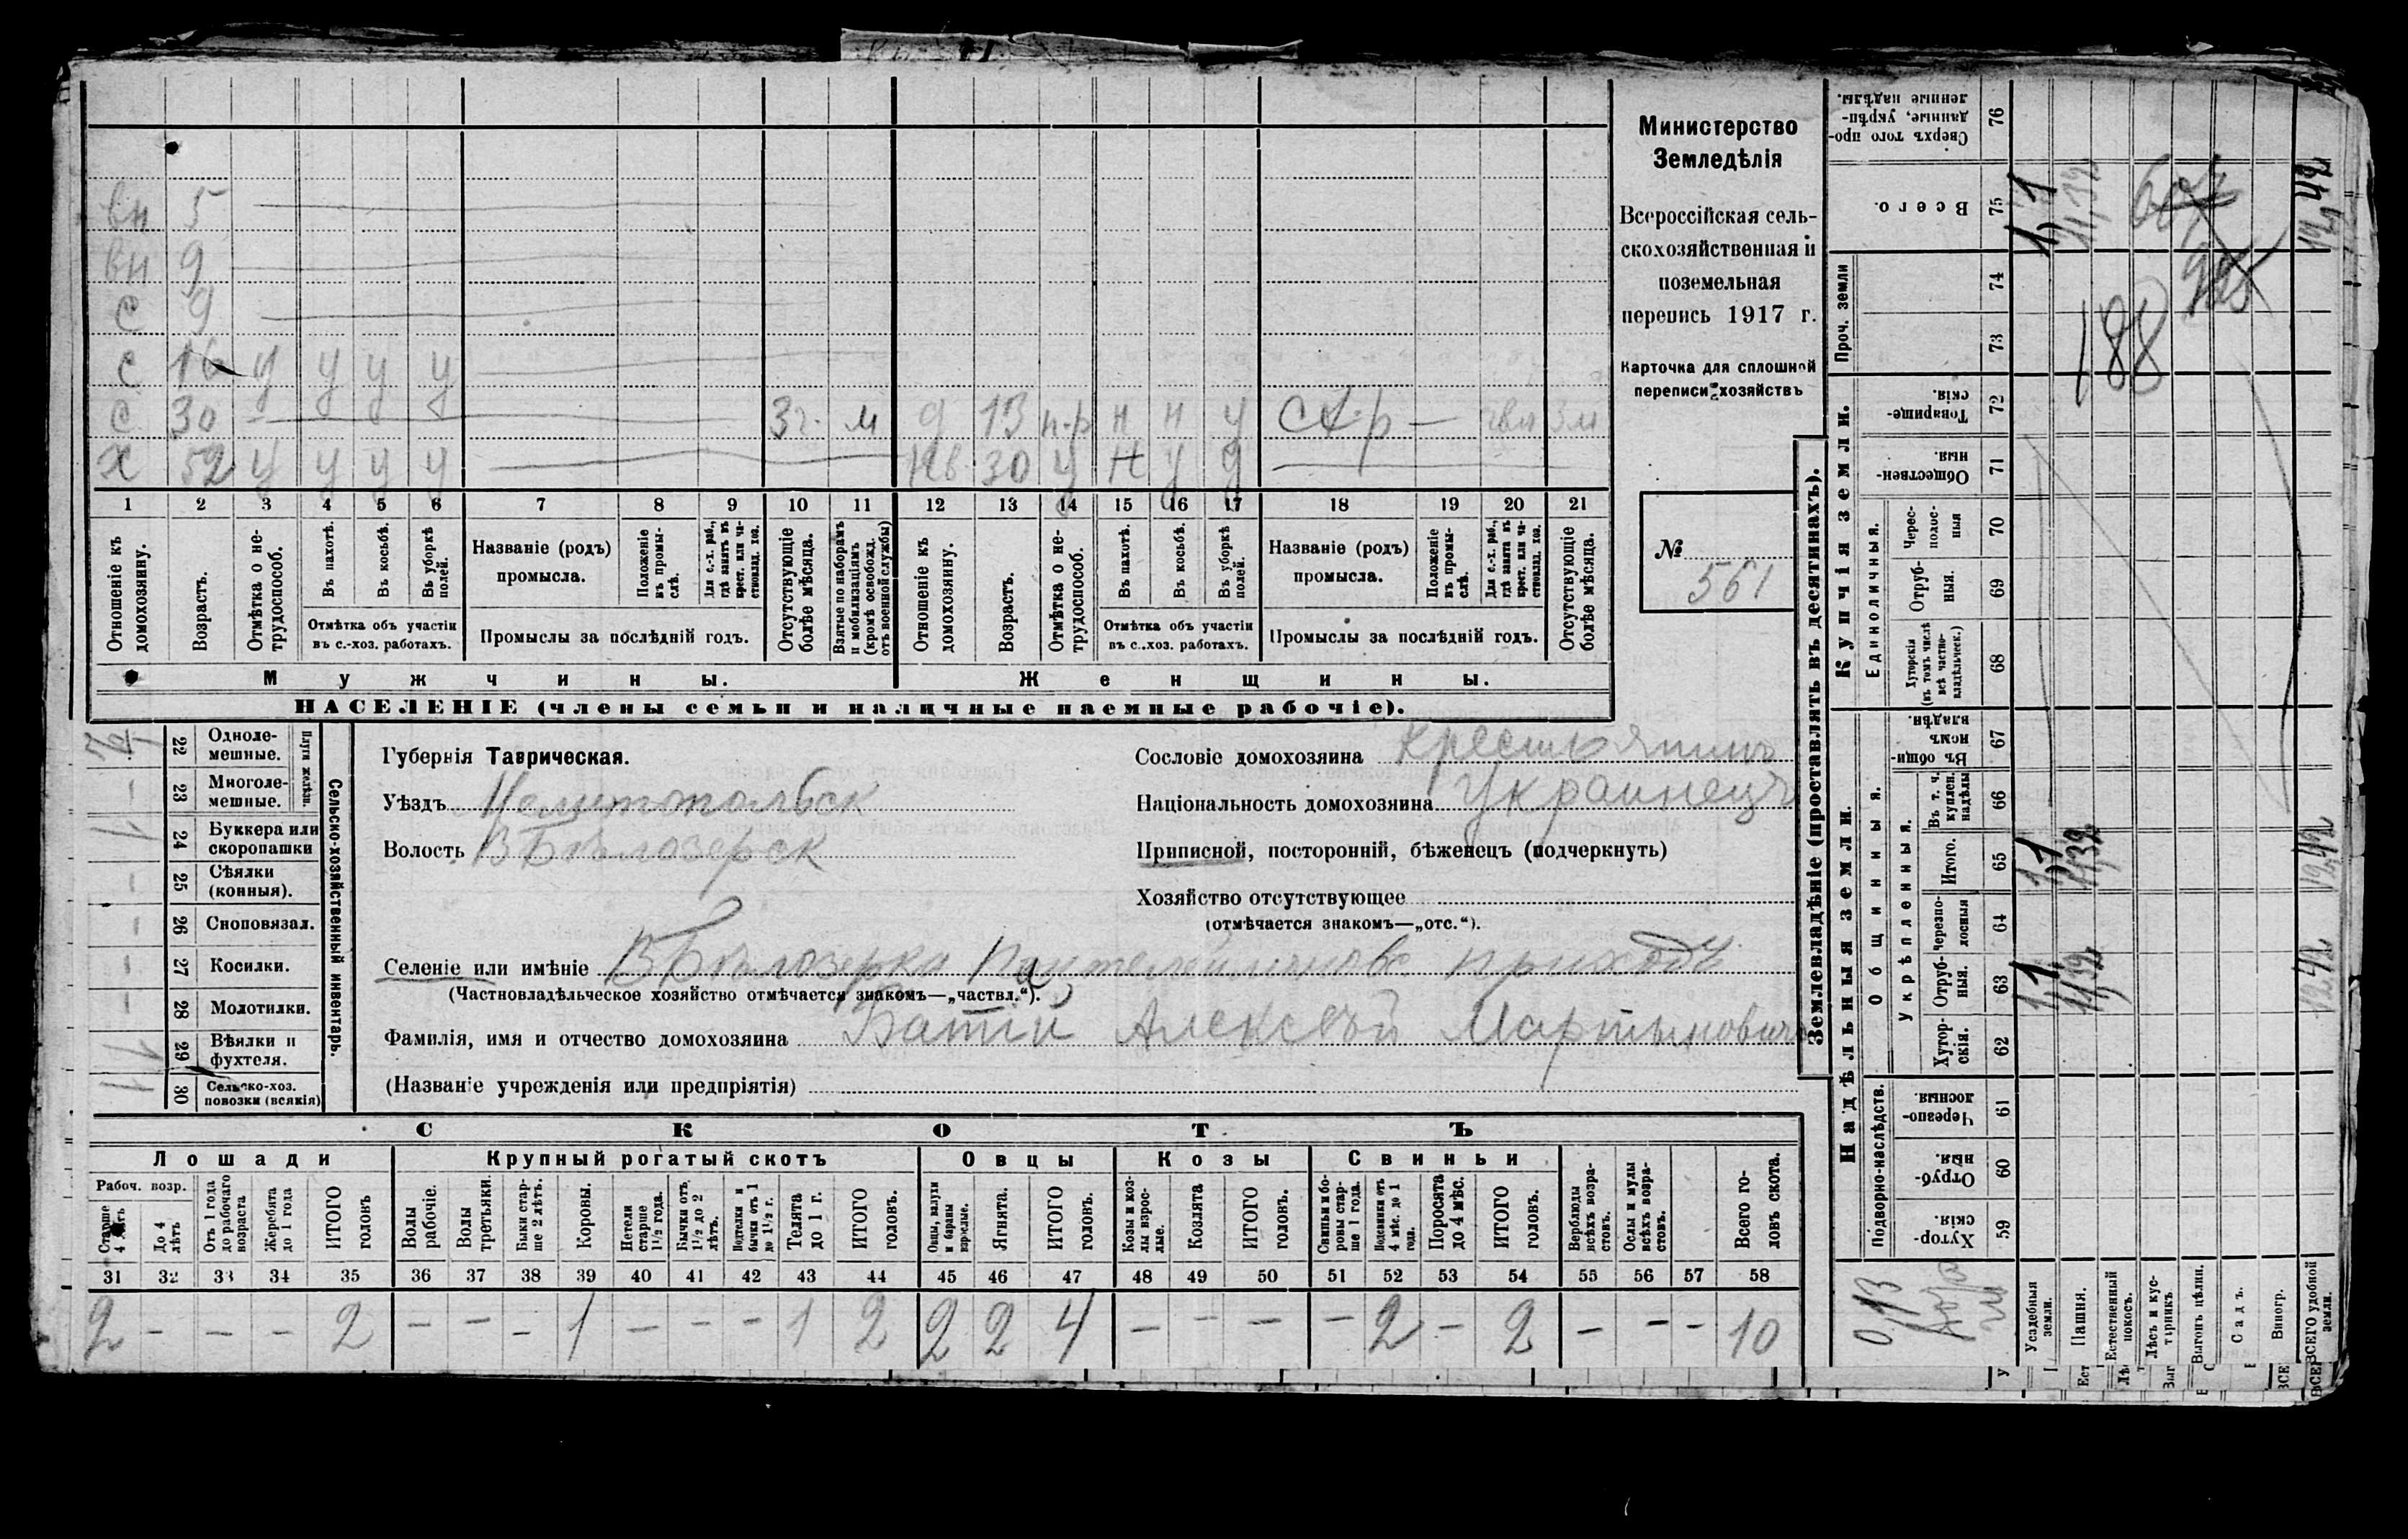 Министерство
Земледѣлія
Всероссійская сель-
скохозяйственная и
поземельная
перепись 1917 г.
Карточка для сплошной
переписи хозяйствъ
№
561
вн 5
вн 9
с 9
с 16 у у у у
с 30 3 г. м д 13 н-р н н у 3м
х 52 у у у у нв 30 у н у у
1 2 3 4 5 6 7 8 9 10 11 12 13 14 15 16 17 18 19 20 21
Отношеніе къ домохозяину.
Возрастъ.
Отмѣтка о не-трудоспособ.
Въ пахотѣ.
Въ косьбѣ.
Въ уборкѣ полей.
Отмѣтка объ участіи
въ с.-хоз. работахъ.
Названіе (родъ)
промысла.
Положеніе въ промы-слѣ.
Для с.-х. раб., гдѣ занятъ въ крест. или ча-стновлад. хоз.
Промыслы за послѣдній годъ.
Отсутствующіе болѣе мѣсяца.
Взятые по наборамъ и мобилизаціямъ (кромѣ освобожд. отъ военной службы)
Отношеніе къ домохозяину.
Возрастъ.
Отмѣтка о не-трудоспособ.
Въ пахотѣ.
Въ косьбѣ.
Въ уборкѣ полей.
Отмѣтка объ участіи
въ с.-хоз. работахъ.
Названіе (родъ)
промысла.
Положеніе въ промы-слѣ.
Для с.-х. раб., гдѣ занята въ крест. или ча-стновлад. хоз.
Промыслы за послѣдній годъ.
Отсутствующіе болѣе мѣсяца.
Мужчины.
Женщины.
НАСЕЛЕНІЕ (члены семьи и наличные наемные рабочіе).
Сельско-хозяйственный инвентарь.
Плуги желѣзн.
22 Одноле-мешные.
— 23 Многоле-мешные.
1 24 Буккера или скоропашки
— 25 Сѣялки (конныя).
— 26 Сноповязал.
— 27 Косилки.
— 28 Молотилки.
1 29 Вѣялки и фухтеля.
1 30 Сельско-хоз. повозки (всякія)
Губернія Таврическая.
Уѣздъ Мелитопольск
Волость ВБѣлозерск
Сословіе домохозяина Крестьянинъ
Національность домохозяина Украинецъ
Приписной, посторонній, бѣженецъ (подчеркнуть)
Хозяйство отсутствующее
(отмѣчается знакомъ—„отс.“).
Селеніе или имѣніе ВБѣлозерка Пантелеймонов приходъ
(Частновладѣльческое хозяйство отмѣчается знакомъ—„частвл.“).
Фамилія, имя и отчество домохозяина Батій Алексѣй Мартыновичъ
(Названіе учрежденія или предпріятія)
СКОТЪ
Лошади
Крупный рогатый скотъ
Овцы
Козы
Свиньи
Рабоч. возр.
Старше 4 лѣтъ
До 4 лѣтъ
Отъ 1 года до рабочаго возраста
Жеребята до 1 года
ИТОГО головъ
Волы рабочіе.
Волы третьяки.
Быки стар-ше 2 лѣтъ.
Коровы.
Нетели старше 1½ года.
Бычки отъ 1½ до 2 лѣтъ.
Подтелки и бычки отъ 1 до 1½ г.
Телята до 1 г.
ИТОГО головъ.
Овцы, валухи и бараны взрослые.
Ягнята.
ИТОГО головъ.
Козы и коз-лы взрос-лые.
Козлята
ИТОГО головъ.
Свиньи и бо-ровы стар-ше 1 года.
Подсвинки отъ 4 мѣс. до 1 года.
Поросята до 4 мѣс.
ИТОГО головъ.
Верблюды всѣхъ возра-стовъ.
Ослы и мулы всѣхъ возра-стовъ.
Всего го-ловъ скота.
31 32 33 34 35 36 37 38 39 40 41 42 43 44 45 46 47 48 49 50 51 52 53 54 55 56 57 58
2 — — — 2 — — — 1 — — — 1 2 2 2 4 — — — — 2 — 2 — — — 10
Землевладѣніе (проставлять въ десятинахъ).
Надѣльныя земли.
Купчія земли.
Проч. земли
Подворно-наслѣдств.
Общинныя.
Укрѣпленныя.
Единоличныя.
Хутор-скія. 59
Отруб-ныя. 60
Черезпо-лосныя. 61
Хутор-скія. 62
Отруб-ныя. 63
Черезпо-лосныя 64
Итого. 65
Въ т. ч. куплен. надѣлы 66
Въ общи-номъ владѣн. 67
Хуторскія (въ томъ числѣ всѣ частно-владѣльческ.) 68
Отруб-ныя. 69
Черес-полос-ныя 70
Обществен-ныя. 71
Товарище-скія. 72
73
74
Всего. 75
Сверхъ того про-данные, укрѣп-ленные надѣлы. 76
Усадебныя земли. 1,1 1,1 1,1
Пашня. 11,32 11,32 11,32
Естественный покосъ.
Лѣсъ и кус-тарникъ
Выгонъ цѣлин.
Садъ.
Виногр.
ВСЕГО удобной земли. 12,42 12,42 12,42
188